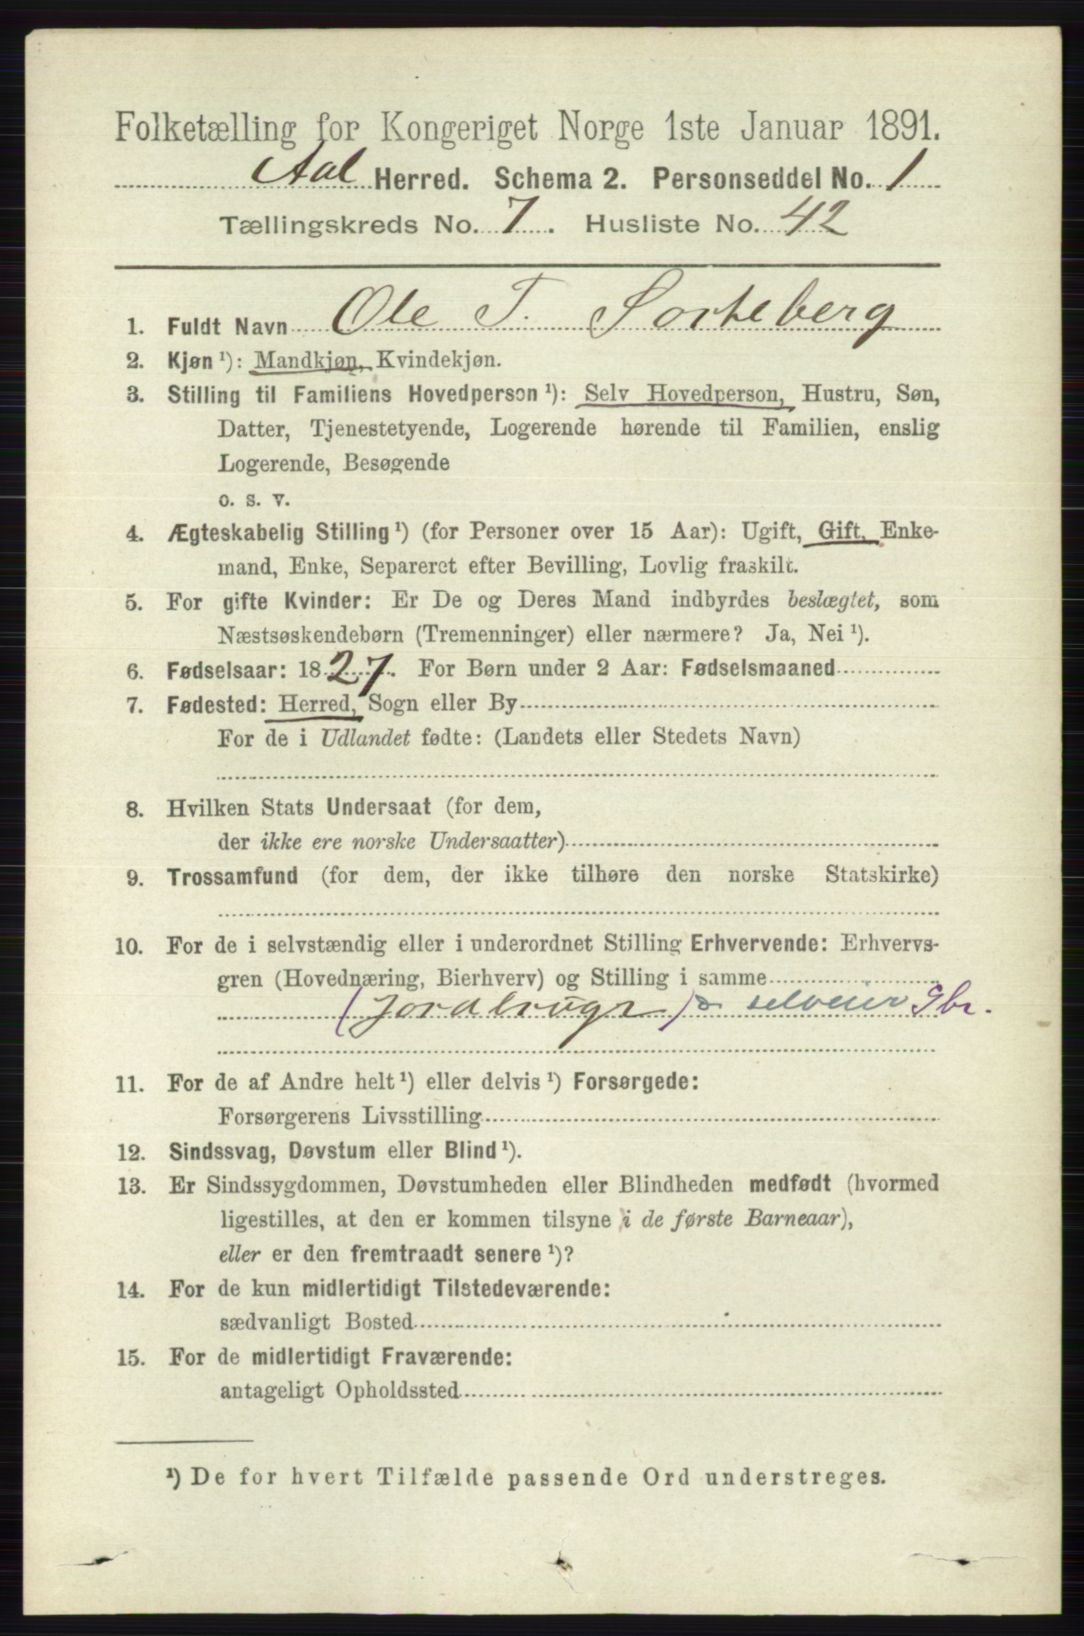 Folketælling for Kongeriget Norge 1ste Januar 1891.
Aal Herred. Schema 2. Personseddel No. 1
Tællingskreds No. 7. Husliste No. 42
1. Fuldt Navn Ole T. Sorteberg
2. Kjøn ¹): Mandkjøn, Kvindekjøn.
3. Stilling til Familiens Hovedperson ¹): Selv Hovedperson, Hustru, Søn,
Datter, Tjenestetyende, Logerende hørende til Familien, enslig
Logerende, Besøgende
o. s. v.
4. Ægteskabelig Stilling ¹) (for Personer over 15 Aar): Ugift, Gift, Enke-
mand, Enke, Separeret efter Bevilling, Lovlig fraskilt.
5. For gifte Kvinder: Er De og Deres Mand indbyrdes beslægtet, som
Næstsøskendebørn (Tremenninger) eller nærmere? Ja, Nei ¹).
6. Fødselsaar: 1827. For Børn under 2 Aar: Fødselsmaaned
7. Fødested: Herred, Sogn eller By
For de i Udlandet fødte: (Landets eller Stedets Navn)
8. Hvilken Stats Undersaat (for dem,
der ikke ere norske Undersaatter)
9. Trossamfund (for dem, der ikke tilhøre den norske Statskirke)
10. For de i selvstændig eller i underordnet Stilling Erhvervende: Erhvervs-
gren (Hovednæring, Bierhverv) og Stilling i samme
(Jordbrugr) selveier Gbr.
11. For de af Andre helt ¹) eller delvis ¹) Forsørgede:
Forsørgerens Livsstilling
12. Sindssvag, Døvstum eller Blind ¹).
13. Er Sindssygdommen, Døvstumheden eller Blindheden medfødt (hvormed
ligestilles, at den er kommen tilsyne i de første Barneaar),
eller er den fremtraadt senere ¹)?
14. For de kun midlertidigt Tilstedeværende:
sædvanligt Bosted
15. For de midlertidigt Fraværende:
antageligt Opholdssted
¹) De for hvert Tilfælde passende Ord understreges.